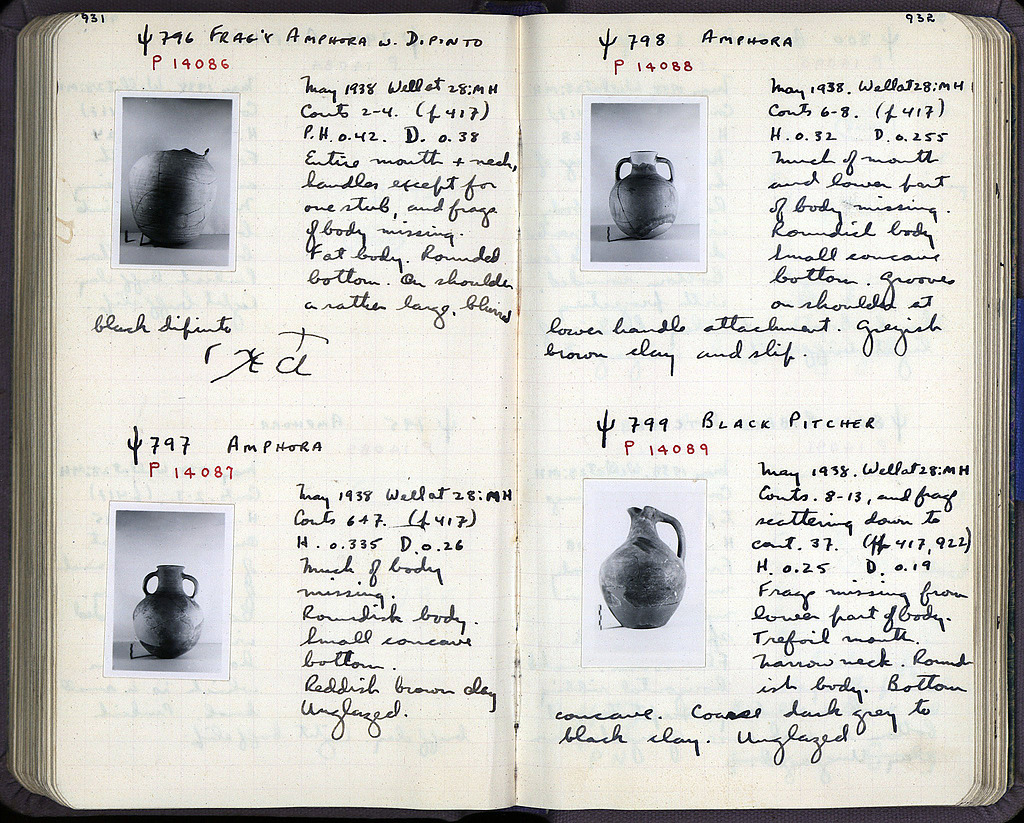 931
ψ 796 FRAG'Y AMPHORA W. DIPINTO
P 14086
May 1938 Well at 28:MH
Conts 2-4. (f 417)
P.H. 0.42. D. 0.38
Entire mouth + neck,
handles except for
one stub, and frags
of body missing.
Fat body. Rounded
bottom. On shoulder
a rather large, blurred
black dipinto
ψ 797 AMPHORA
P 14087
May 1938 Well at 28:MH
Conts 6+7. (f 417)
H. 0.335 D. 0.26
Much of body
missing.
Roundish body.
Small concave
bottom.
Reddish brown clay
Unglazed.
932
ψ 798 AMPHORA
P 14088
May 1938. Well at 28:MH
Conts 6-8. (f 417)
H. 0.32 D. 0.255
Much of mouth
and lower part
of body missing.
Roundish body
Small concave
bottom. Grooves
on shoulder at
lower handle attachment. Greyish
brown clay and slip.
ψ 799 BLACK PITCHER
P 14089
May 1938. Well at 28:MH
Conts. 8-13, and frags
scattering down to
cont. 37. (ff 417, 922)
H. 0.25 D. 0.19
Frags missing from
lower part of body.
Trefoil mouth.
Narrow neck. Round-
ish body. Bottom
concave. Coarse dark grey to
black clay. Unglazed